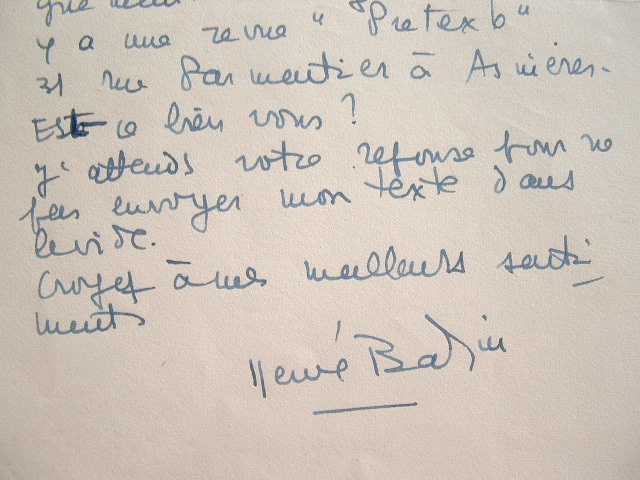 y a une revue "Pretexte"
31 rue Parmentier à Asnières.
Est ce bien vous ?
J'attends votre reponse pour ne
pas envoyer mon texte dans
le vide.
Croyez à mes meilleurs senti
ments
Hervé Bazin